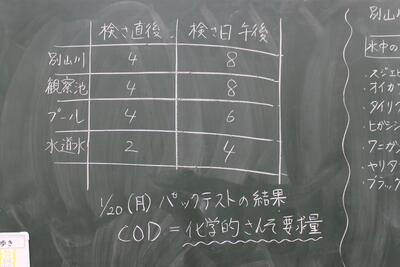 検さ直後 検さ日午後
別山川 4 8
観察池 4 8
プール 4 6
水道水 2 4
1/20(月)パックテストの結果
COD=化学的さんそ要求量
別山川
水中の
・スジエビ
・オイカ
・タイリク
・ヒガシ
・ワニガ
・ヤリタ
・ブラック